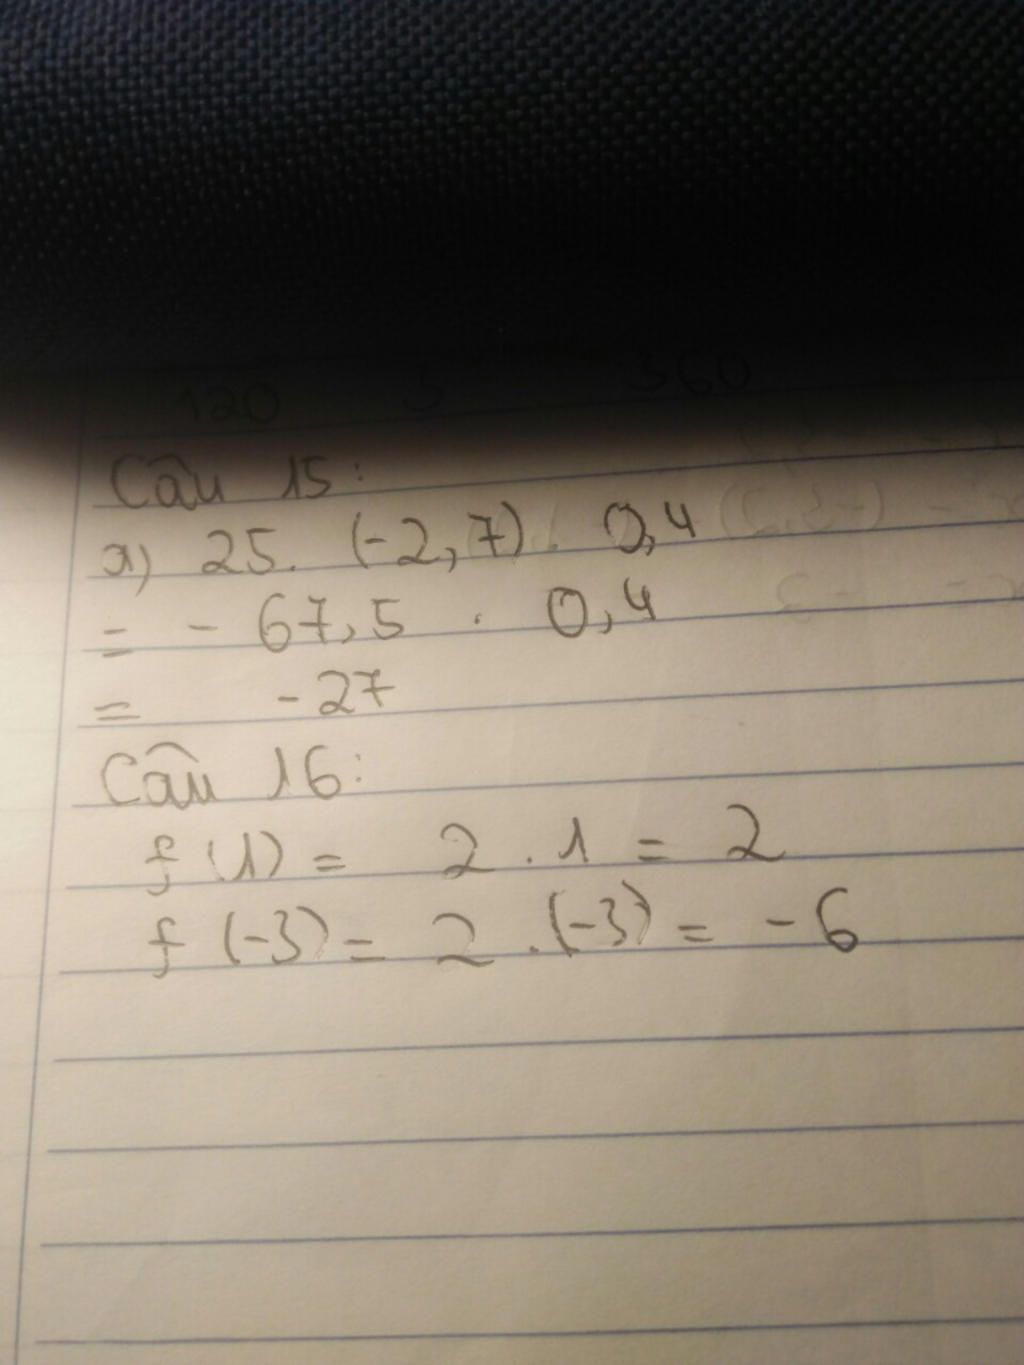 120 3 360
Câu 15:
a) 25. (-2,7). 0,4
= - 67,5 . 0,4
= -27
Câu 16:
f(1) = 2 . 1 = 2
f(-3) = 2 .(-3) = -6